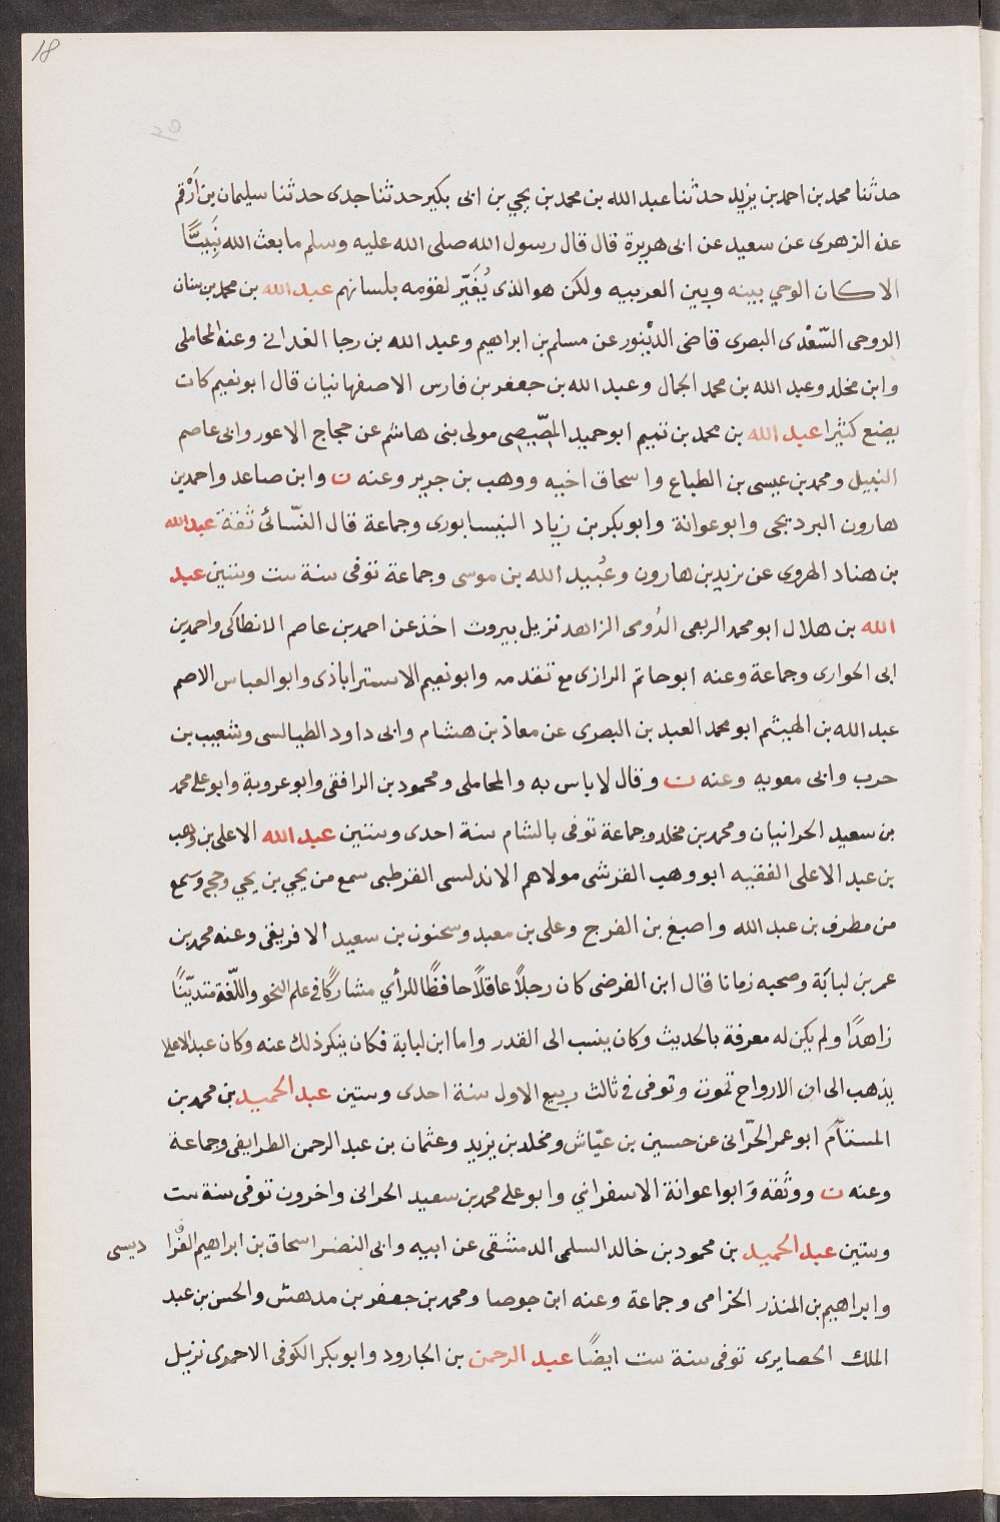 18
٢٥
حدثنا محمد بن احمد بن يزيد حدثنا عبد الله بن محمد بن يحيي بن ابى بكير حدثنا جدى حدثنا سليمان بن اَرْقم
عن الزهرى عن سعيد عن ابى هريرة قال قال رسول الله صلى الله عليه وسلم ما بعث الله نَبِيًّا
الا كان الوحي بينه وبين العربيه ولكن هو الذى يُغَيّر لقومه بلسانهم عبد الله بن محمد بن سنان
الروحى السّعْدى البصرى قاضى الدَّيْنور عن مسلم بن ابراهيم وعبد الله بن رجا الغدانى وعنه المحاملى
وابن مخلد وعبد الله بن محمد الجمال وعبد الله بن جعفر بن فارس الاصفهانيان قال ابو نعيم كان
يضع كثيرا عبد الله بن محمد بن تميم ابو حميد المِصّيصى مولى بنى هاشم عن حجاج الاعور وابى عاصم
النبيل ومحمد بن عيسى بن الطباع واسحاق اخيه ووهب بن جرير وعنه ن وابن صاعد واحمد بن
هارون البرديجى وابو عوانة وابو بكر بن زياد النيسابورى وجماعة قال النّسائى ثقة عبد الله
بن هناد الهروى عن يزيد بن هارون وعُبيد الله بن موسى وجماعة توفى سنة ست وستين عبد
الله بن هلال ابو محمد الربعى الدُومى الزاهد نزيل بيروت اخذ عن احمد بن عاصم الانطاكى واحمد بن
ابى الحوارى وجماعة وعنه ابو حاتم الرازى مع تقدمه وابو نعيم الاستراباذى وابو العباس الاصم
عبد الله بن الهيثم ابو محمد العبد بن البصرى عن معاذ بن هشام وابى داود الطيالسى وشعيب بن
حرب وابى معويه وعنه ن وقال لا باس به والمحاملى ومحمود بن الرافقى وابو عروبة وابو على محمد
بن سعيد الحرانيان ومحمد بن مخلد وجماعة توفى بالشام سنة احدى وستين عبد الله الاعلى بن وهب
بن عبد الاعلى الفقيه ابو وهب القرشى مولاهم الاندلسى القرطبى سمع من يحيي بن يحيي وحج وسمع
من مطرف بن عبد الله واصبغ بن الفرج وعلى بن معبد وسحنون بن سعيد الافريقى وعنه محمد بن
عمر بن لبابَة وصحبه زمانا قال ابن الفرضى كان رجلاً عاقلاً حافظًا للرأي مشاركًا فى علم النحو واللّغة متديّنًا
زاهدًا ولم يكن له معرفة بالحديث وكان ينسب الى القدر واما ابن لبابة فكان ينكر ذلك عنه وكان عبد الاعلى
يذهب الى ان الارواح تموت وتوفى فى ثالث ربيع الاول سنة احدى وستين عبد الحميد بن محمد بن
المستآم ابو عمر الحَرّانى عن حسين بن عيّاش ومخلد بن يزيد وعثمان بن عبد الرحمن الطرايفى وجماعة
وعنه ن ووثّقه وَابوا عوانة الاسفرانى وابو على محمد بن سعيد الحرانى واخرون توفى سنة ست
وستين عبد الحميد بن محمود بن خالد السلمى الدمشقى عن ابيه وابى النضر اسحاق بن ابراهيم الفُرا ديسى
وابراهيم بن المنذر الحزامى وجماعة وعنه ابن جوصا ومحمد بن جعفر بن مدهش والحسن بن عبد
الملك الحصايرى توفى سنة ست ايضًا عبد الرحمن بن الجارود وابو بكر الكوفى الاحمرى نزيل